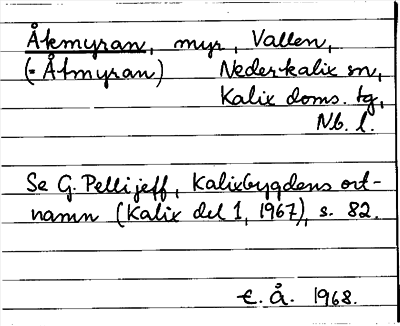 Åkmyran, myr, Vallen,
(= Åtmyran) Nederkalix sn,
Kalix doms. tg,
Nb. l.
Se G. Pellijeff, Kalixbygdens ort-
namn (Kalix del 1, 1967), s. 82.
E. Å. 1968.